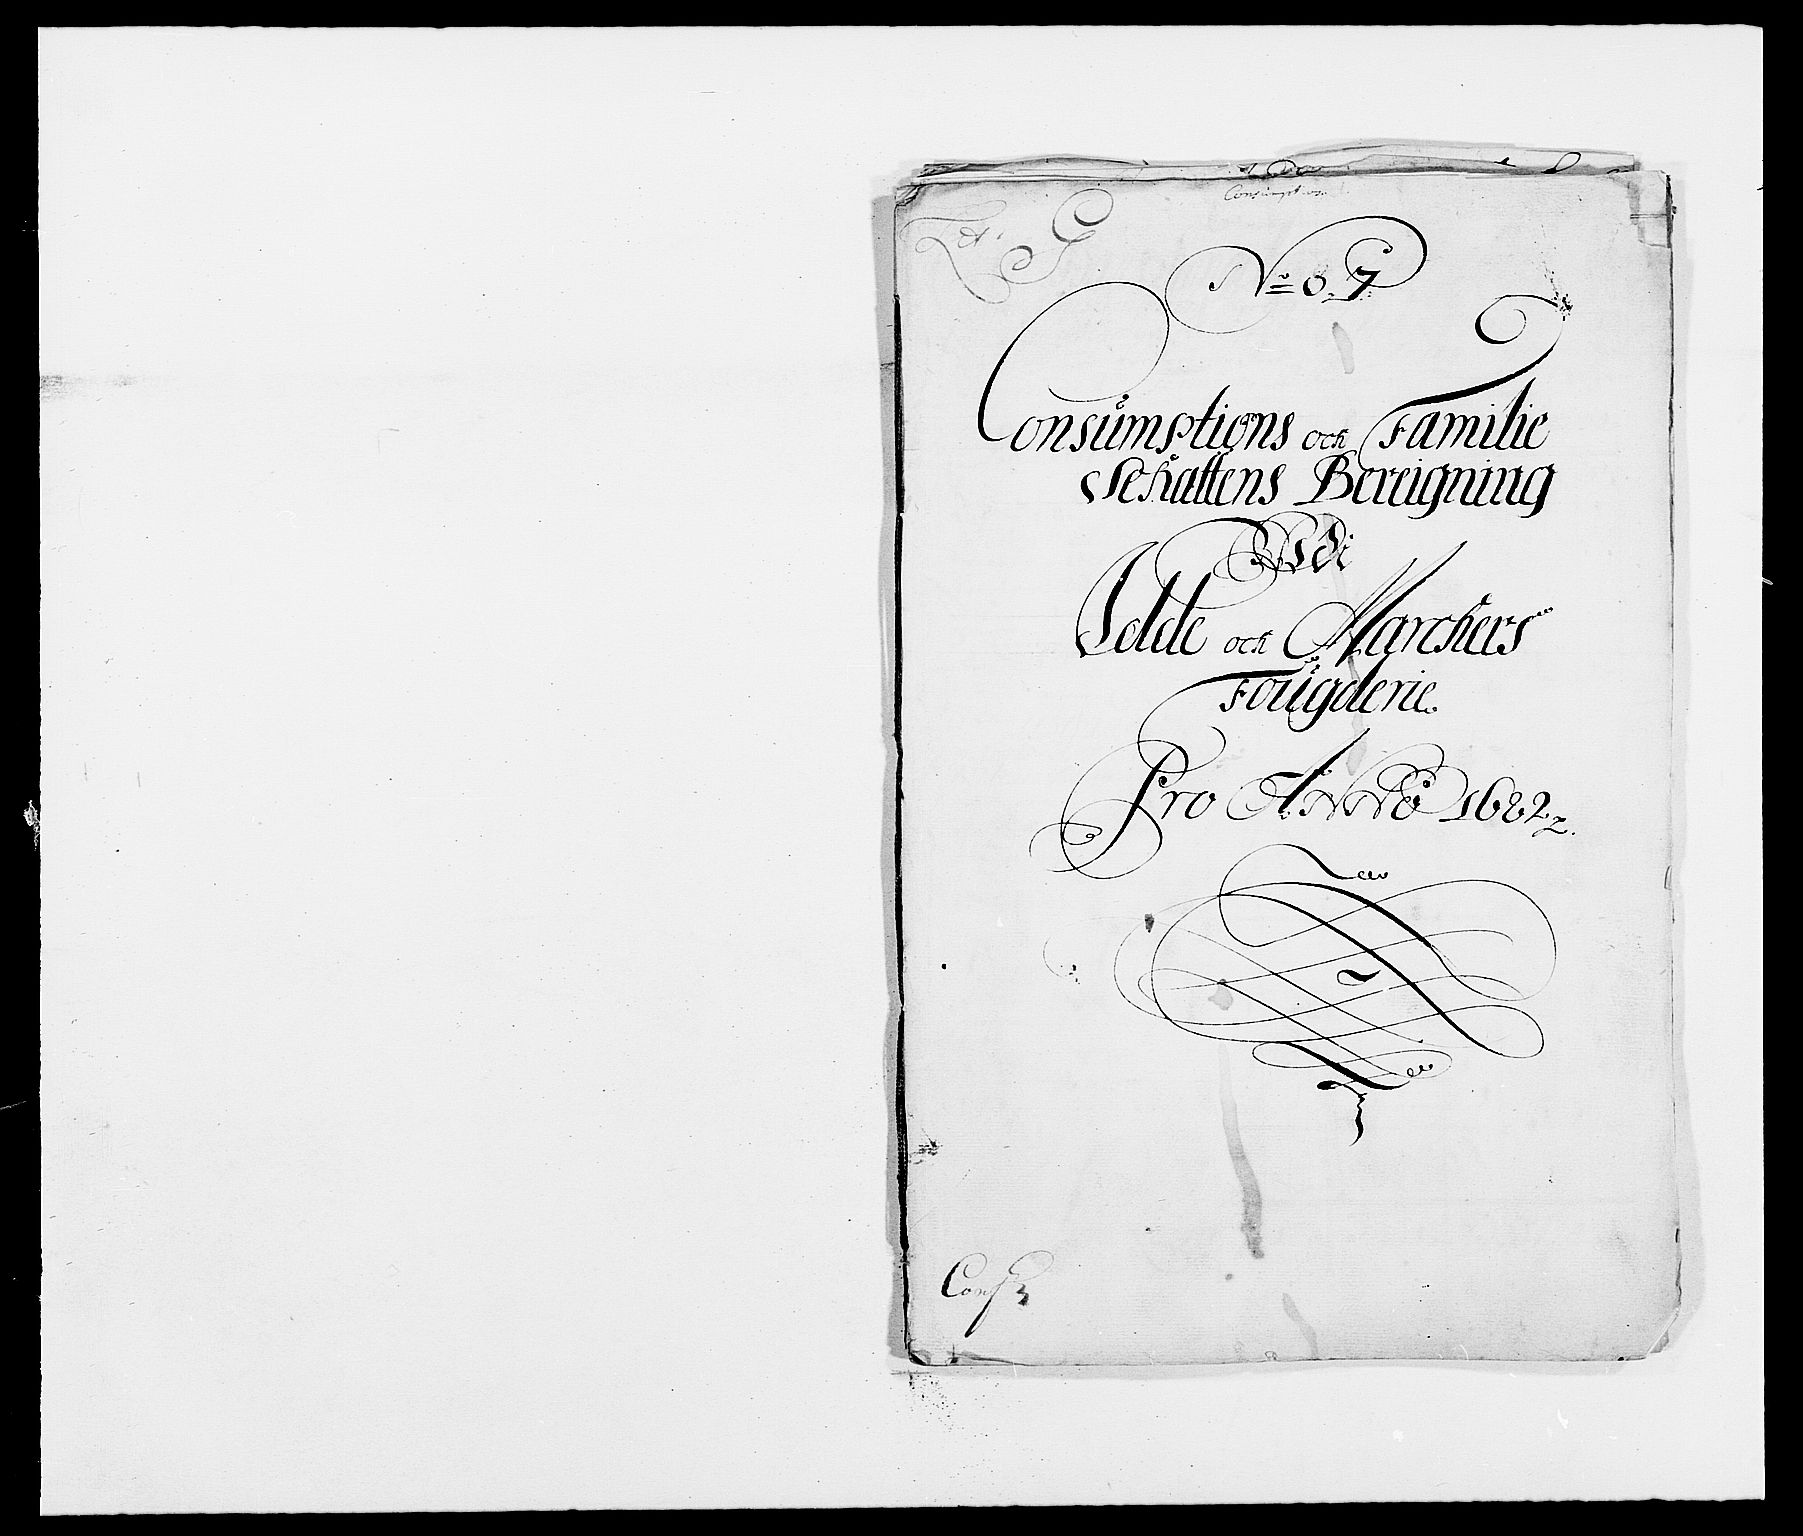 Consumption
Lit. G
No 7
Consumptions och Familie
Schattens Bereigning
Udi
Idde och Marchers
Fougderie.
Pro Anno 1682